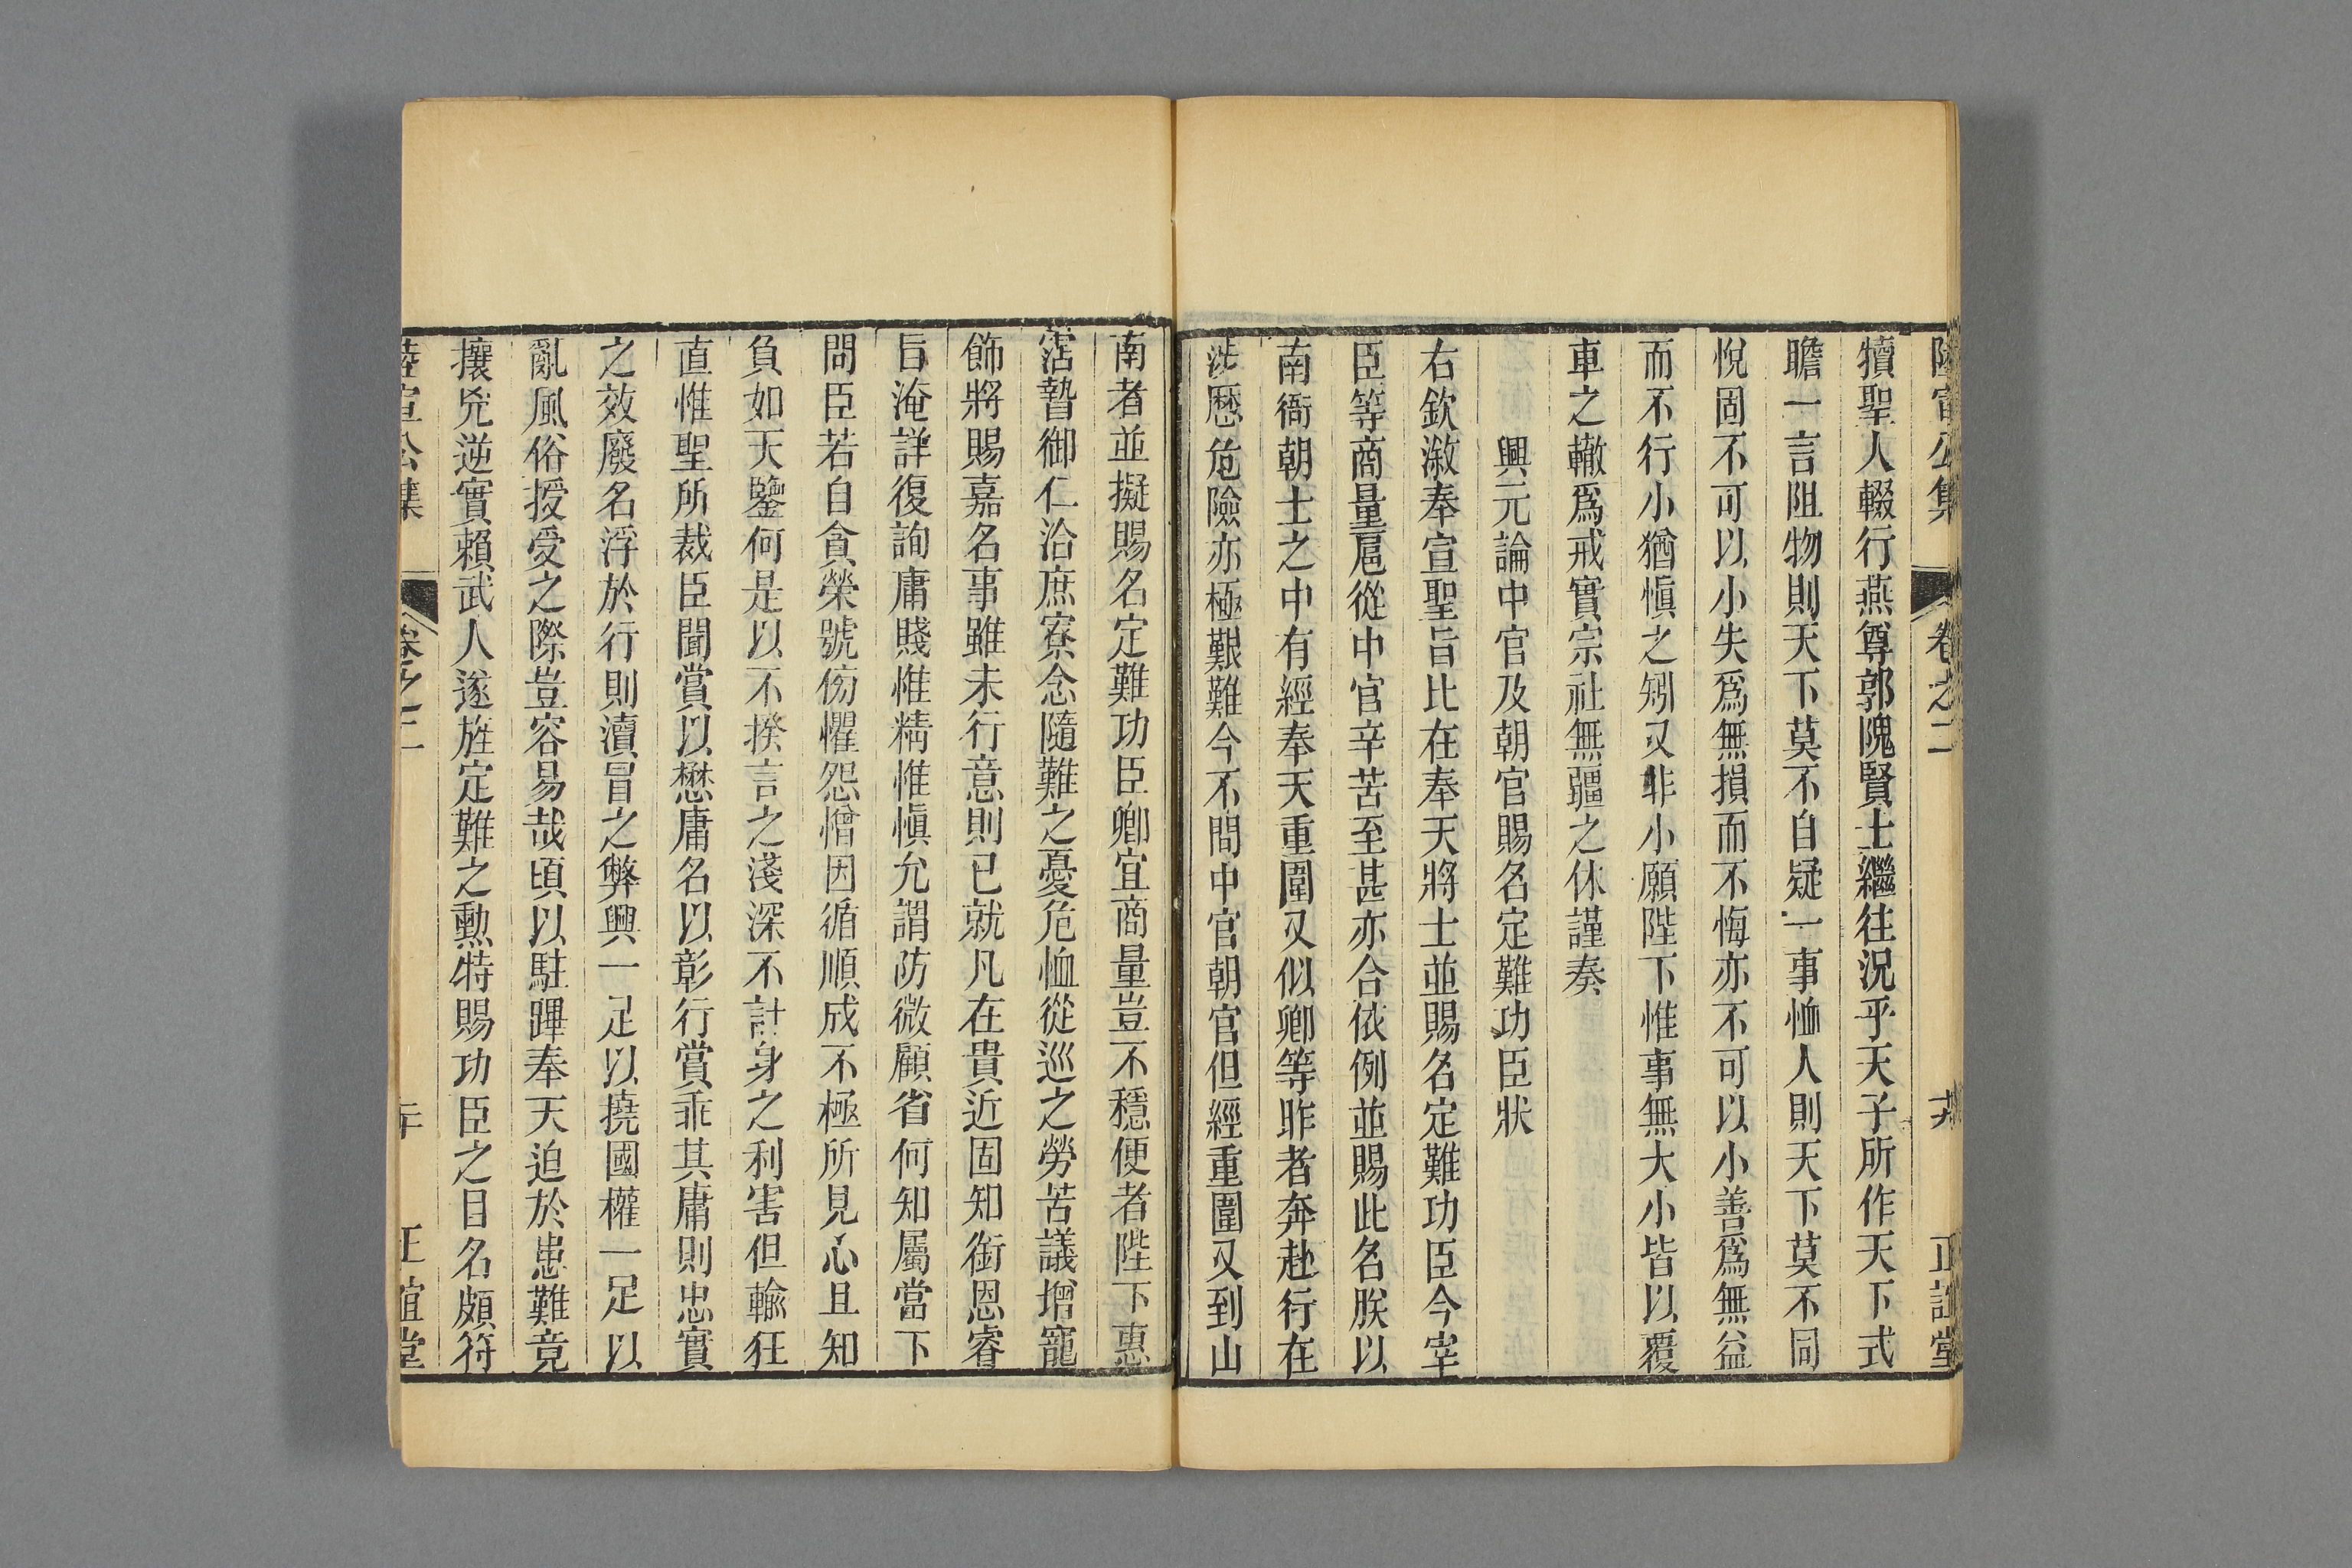 陸宣公集 卷之二 十九 正誼堂
犢聖人輟行燕尊郭隗賢士繼往況乎天子所作天下式
瞻一言阻物則天下莫不自疑一事恤人則天下莫不同
悅固不可以小失爲無損而不悔亦不可以小善爲無益
而不行小猶愼之矧又非小願陛下惟事無大小皆以覆
車之轍爲戒實宗社無疆之休謹奏
興元論中官及朝官賜名定難功臣狀
右欽漵奉宣聖旨比在奉天將士並賜名定難功臣今宰
臣等商量扈從中官辛苦至甚亦合依例並賜此名朕以
南衙朝士之中有經奉天重圍又似卿等昨者奔赴行在
涉歷危險亦極艱難今不間中官朝官但經重圍又到山
南者並擬賜名定難功臣卿宜商量豈不穩便者陛下惠
霑暬御仁洽庶寮念隨難之憂危恤從巡之勞苦議增寵
飾將賜嘉名事雖未行意則已就凡在貴近固知銜恩睿
旨淹詳復詢庸賤惟精惟愼允謂防微顧省何知屬當下
問臣若自貪榮號傍懼怨憎因循順成不極所見心且知
負如天鑒何是以不揆言之淺深不計身之利害但輸狂
直惟聖所裁臣聞賞以懋庸名以彰行賞乖其庸則忠實
之效廢名浮於行則瀆冒之弊興一足以撓國權一足以
亂風俗授受之際豈容易哉頃以駐蹕奉天迫於患難竟
攘兇逆實賴武人遂旌定難之勲特賜功臣之目名頗符
陸宣公集 卷之二 二十 正誼堂